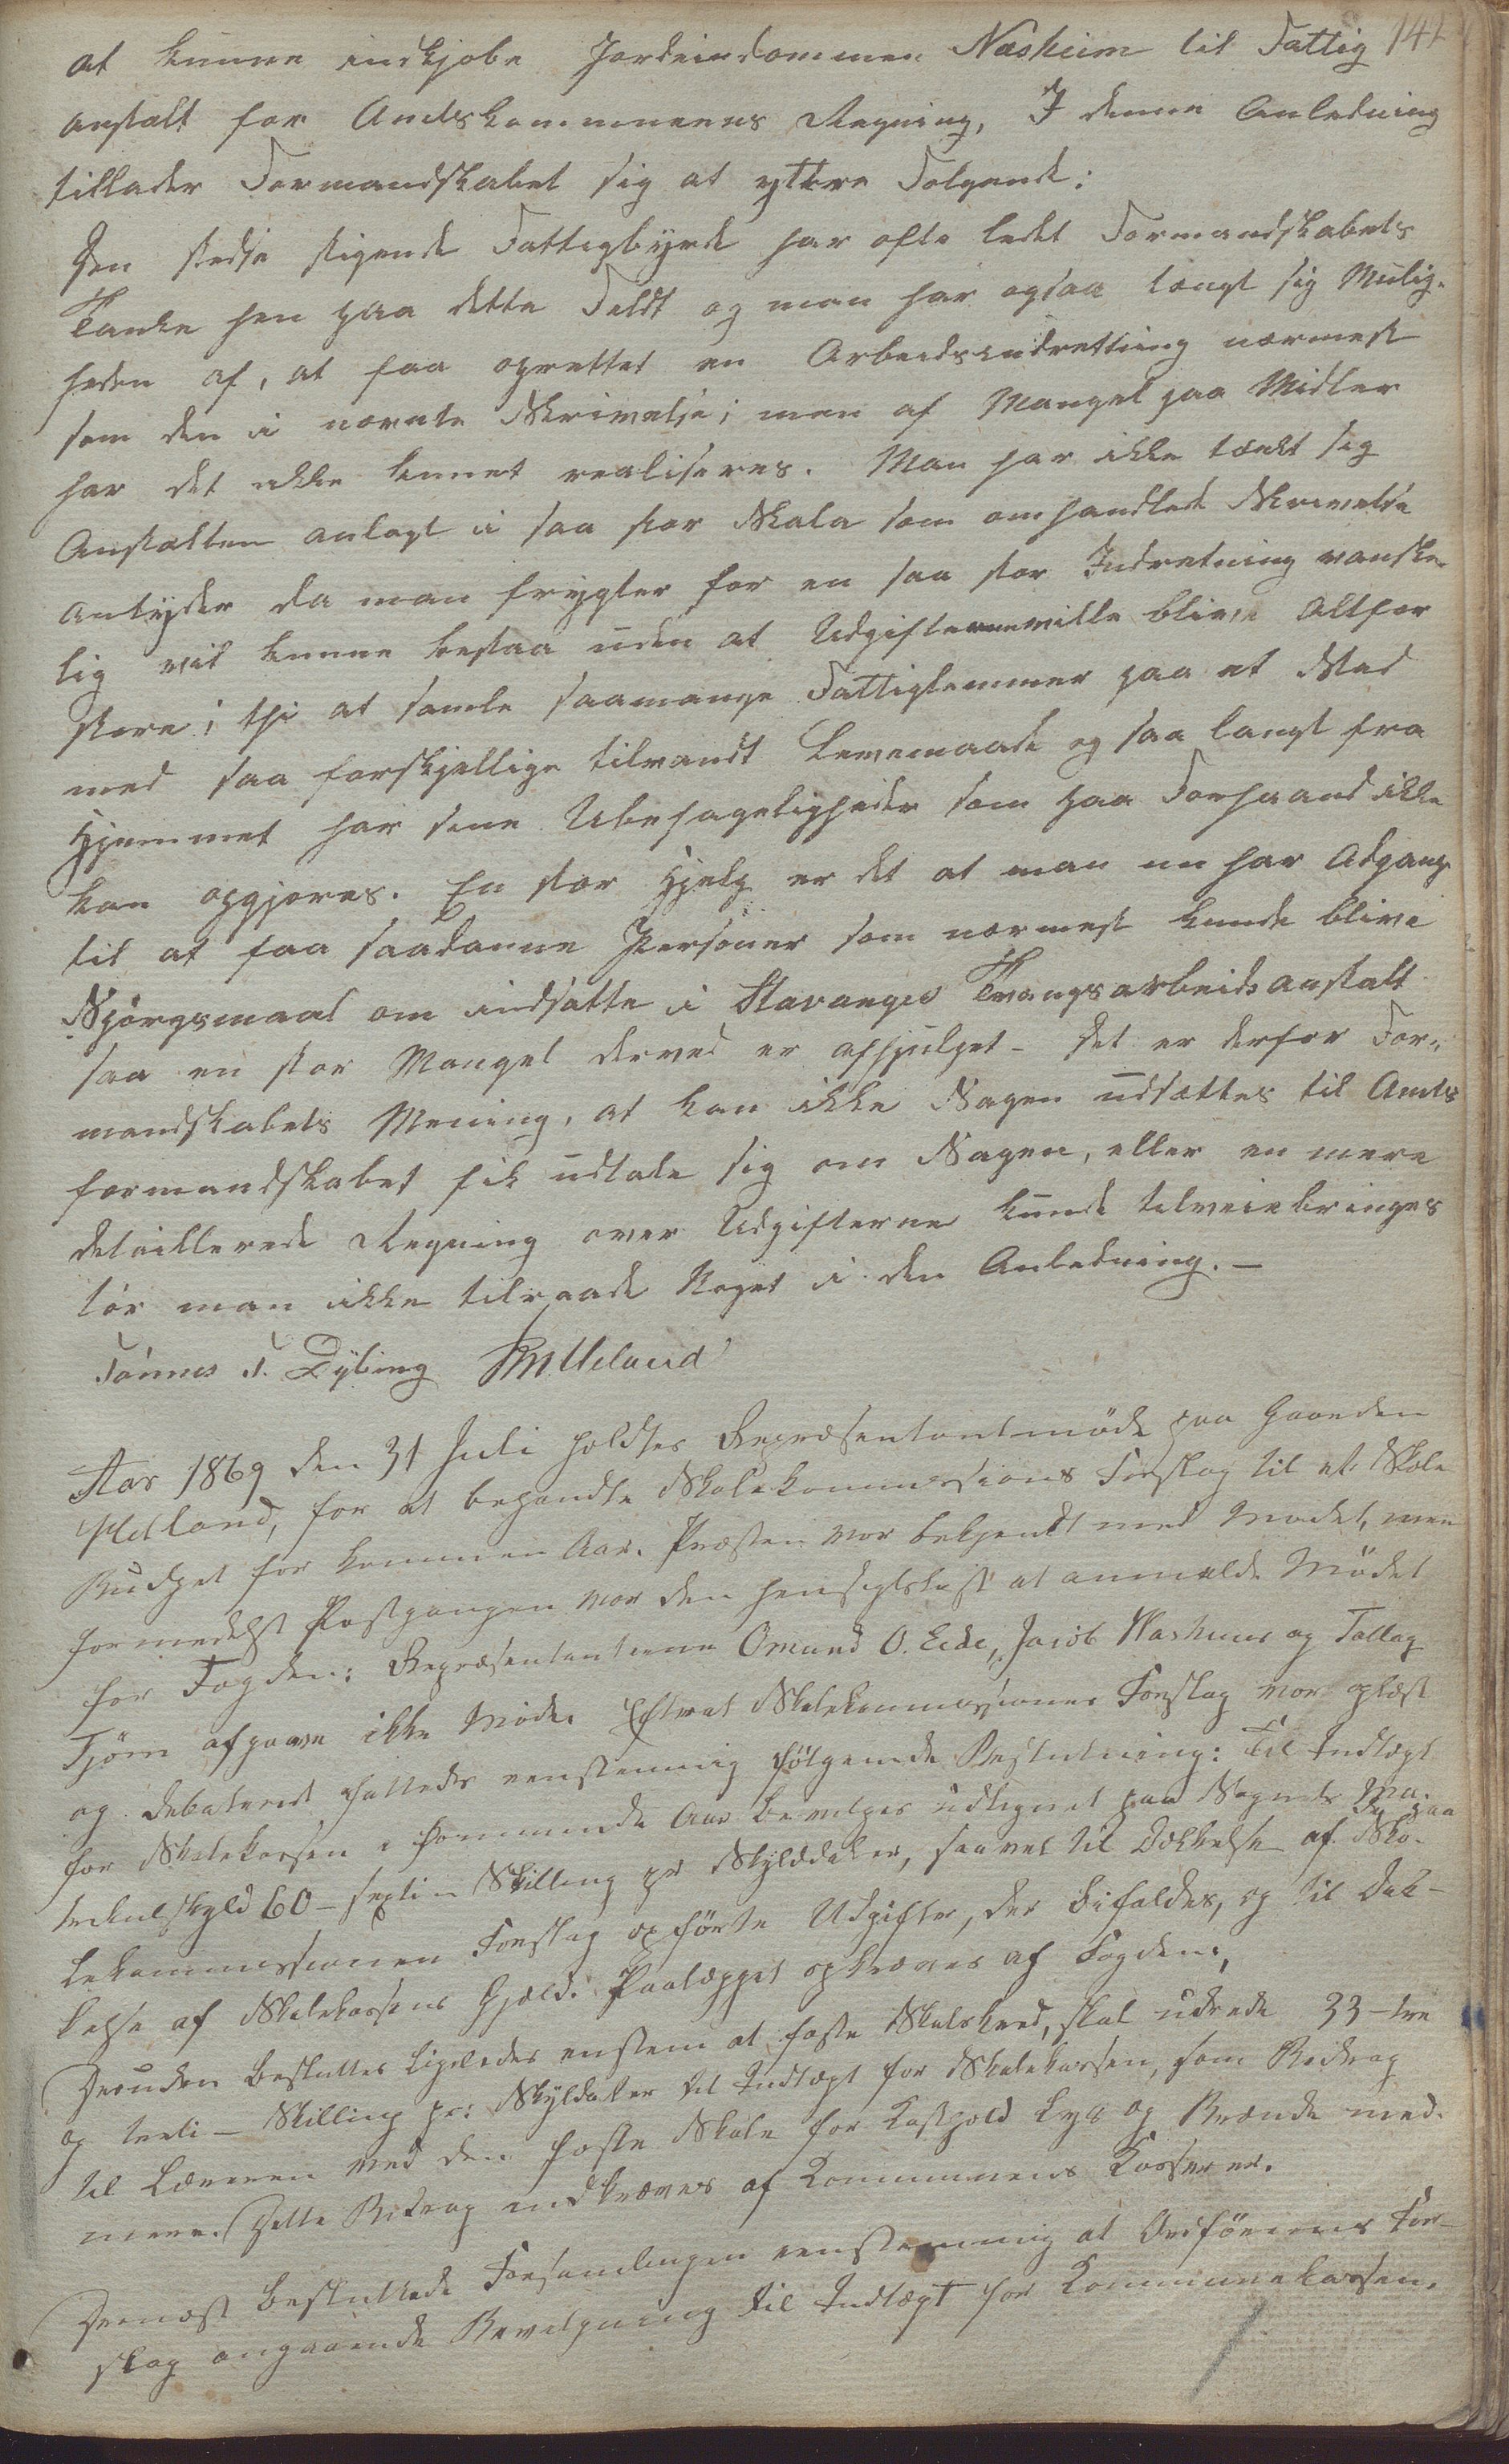 141
at kunne indkjøbe Jordeiendommen Næsheim til Fattig
anstalt for Amtskommunens Regning, I denne Anledning
tillader Formandskabet sig at yttre Følgende:
Den stedse stigende Fattigbyrde har ofte ledet Formandskabets
Tanke hen paa dette Feldt og man har ogsaa tængt sig Mulig-
heden af, at faa oprettet en Arbeidsindretting nærmest
som den i nævnte Skrivelse; men af Mangel paa Midler
har det ikke kunnet realiseres. Man har ikke tænkt sig
Anstalten anlagt i saa stor Skala som omhandlede Skrivelse
antyder da man frygter for en saa stor Indretning vanske-
lig vil kunne bestaa uden at Udgifterne ville blive altfor
store; thi at samle saamange Fattiglemmer paa et Sted
med saa forskjellige tilvandt Levemaade og saa langt fra
Hjemmet har sine Ubehageligheder som paa Forhaand ikke
kan opgjøres. En stor Hjelp er det at man nu har Adgang
til at faa saadanne Personer som nærmest kunde blive
Spørgsmaal om indsatte i Stavanger Tvangsarbeidsanstalt
saa en stor Mangel derved er afhjulpet - det er derfor For-
mandskabets Mening, at kan ikke Sagen udsættes til Amts
formandskabet fik udtale sig om Sagen, eller en mere
detaillerede Regning over Udgifterne kunde tilveiebringes
tør man ikke tilraade Noget i den Anledning. -
Tønnes T. Dybing  Ueland
Aar 1869 den 31 Juli holdtes Repræsentantmøde paa Gaarden
Hetland, for at behandle Skolekommissions Forslag til et Skole
Budget for kommen Aar. Præsten var bekjendt med Mødet, men
formedelst Postgangen var den hensigtsløst at anmelde Mødet
for Fogden: Repræsentanterne Omund O. Eide, Jacob Vashuus og Tollag
Tjørn afgaave ikke Møde. Efterat Skolekommissionens Forslag var oplæst
og debateret fattedes eenstemmig følgende Beslutning: Til Indtægt
for Skolekassen i kommende Aar bevilges udlignet paa Sognets Ma-
trikulskyld 60 - sexti - Skilling pr Skylddaler, saavel til Dækkelse af de paa Sko-
lekommissionen Forslag opførte Udgifter, der bifaldes, og til Dæk-
kelse af Skolekassens Gjæld. Paalægget opkræves af Fogden,
Desuden besluttes ligeledes enstem at faste Skolekred, skal udrede 33 - tre
og treti - Skilling pr: Skyldaler til Indtægt for Skolekassen, som Bidrag
til Læreren ved den faste Skole for Kosthold Lys og Brænde med-
mere. Dette Bidrag indkræves af Kommunens Kasserer.
Dernæst besluttede Forsamlingen eenstemmig at Ordførerens For-
slag angaaende Bevilgning til Indtægt for Kommunekassen.